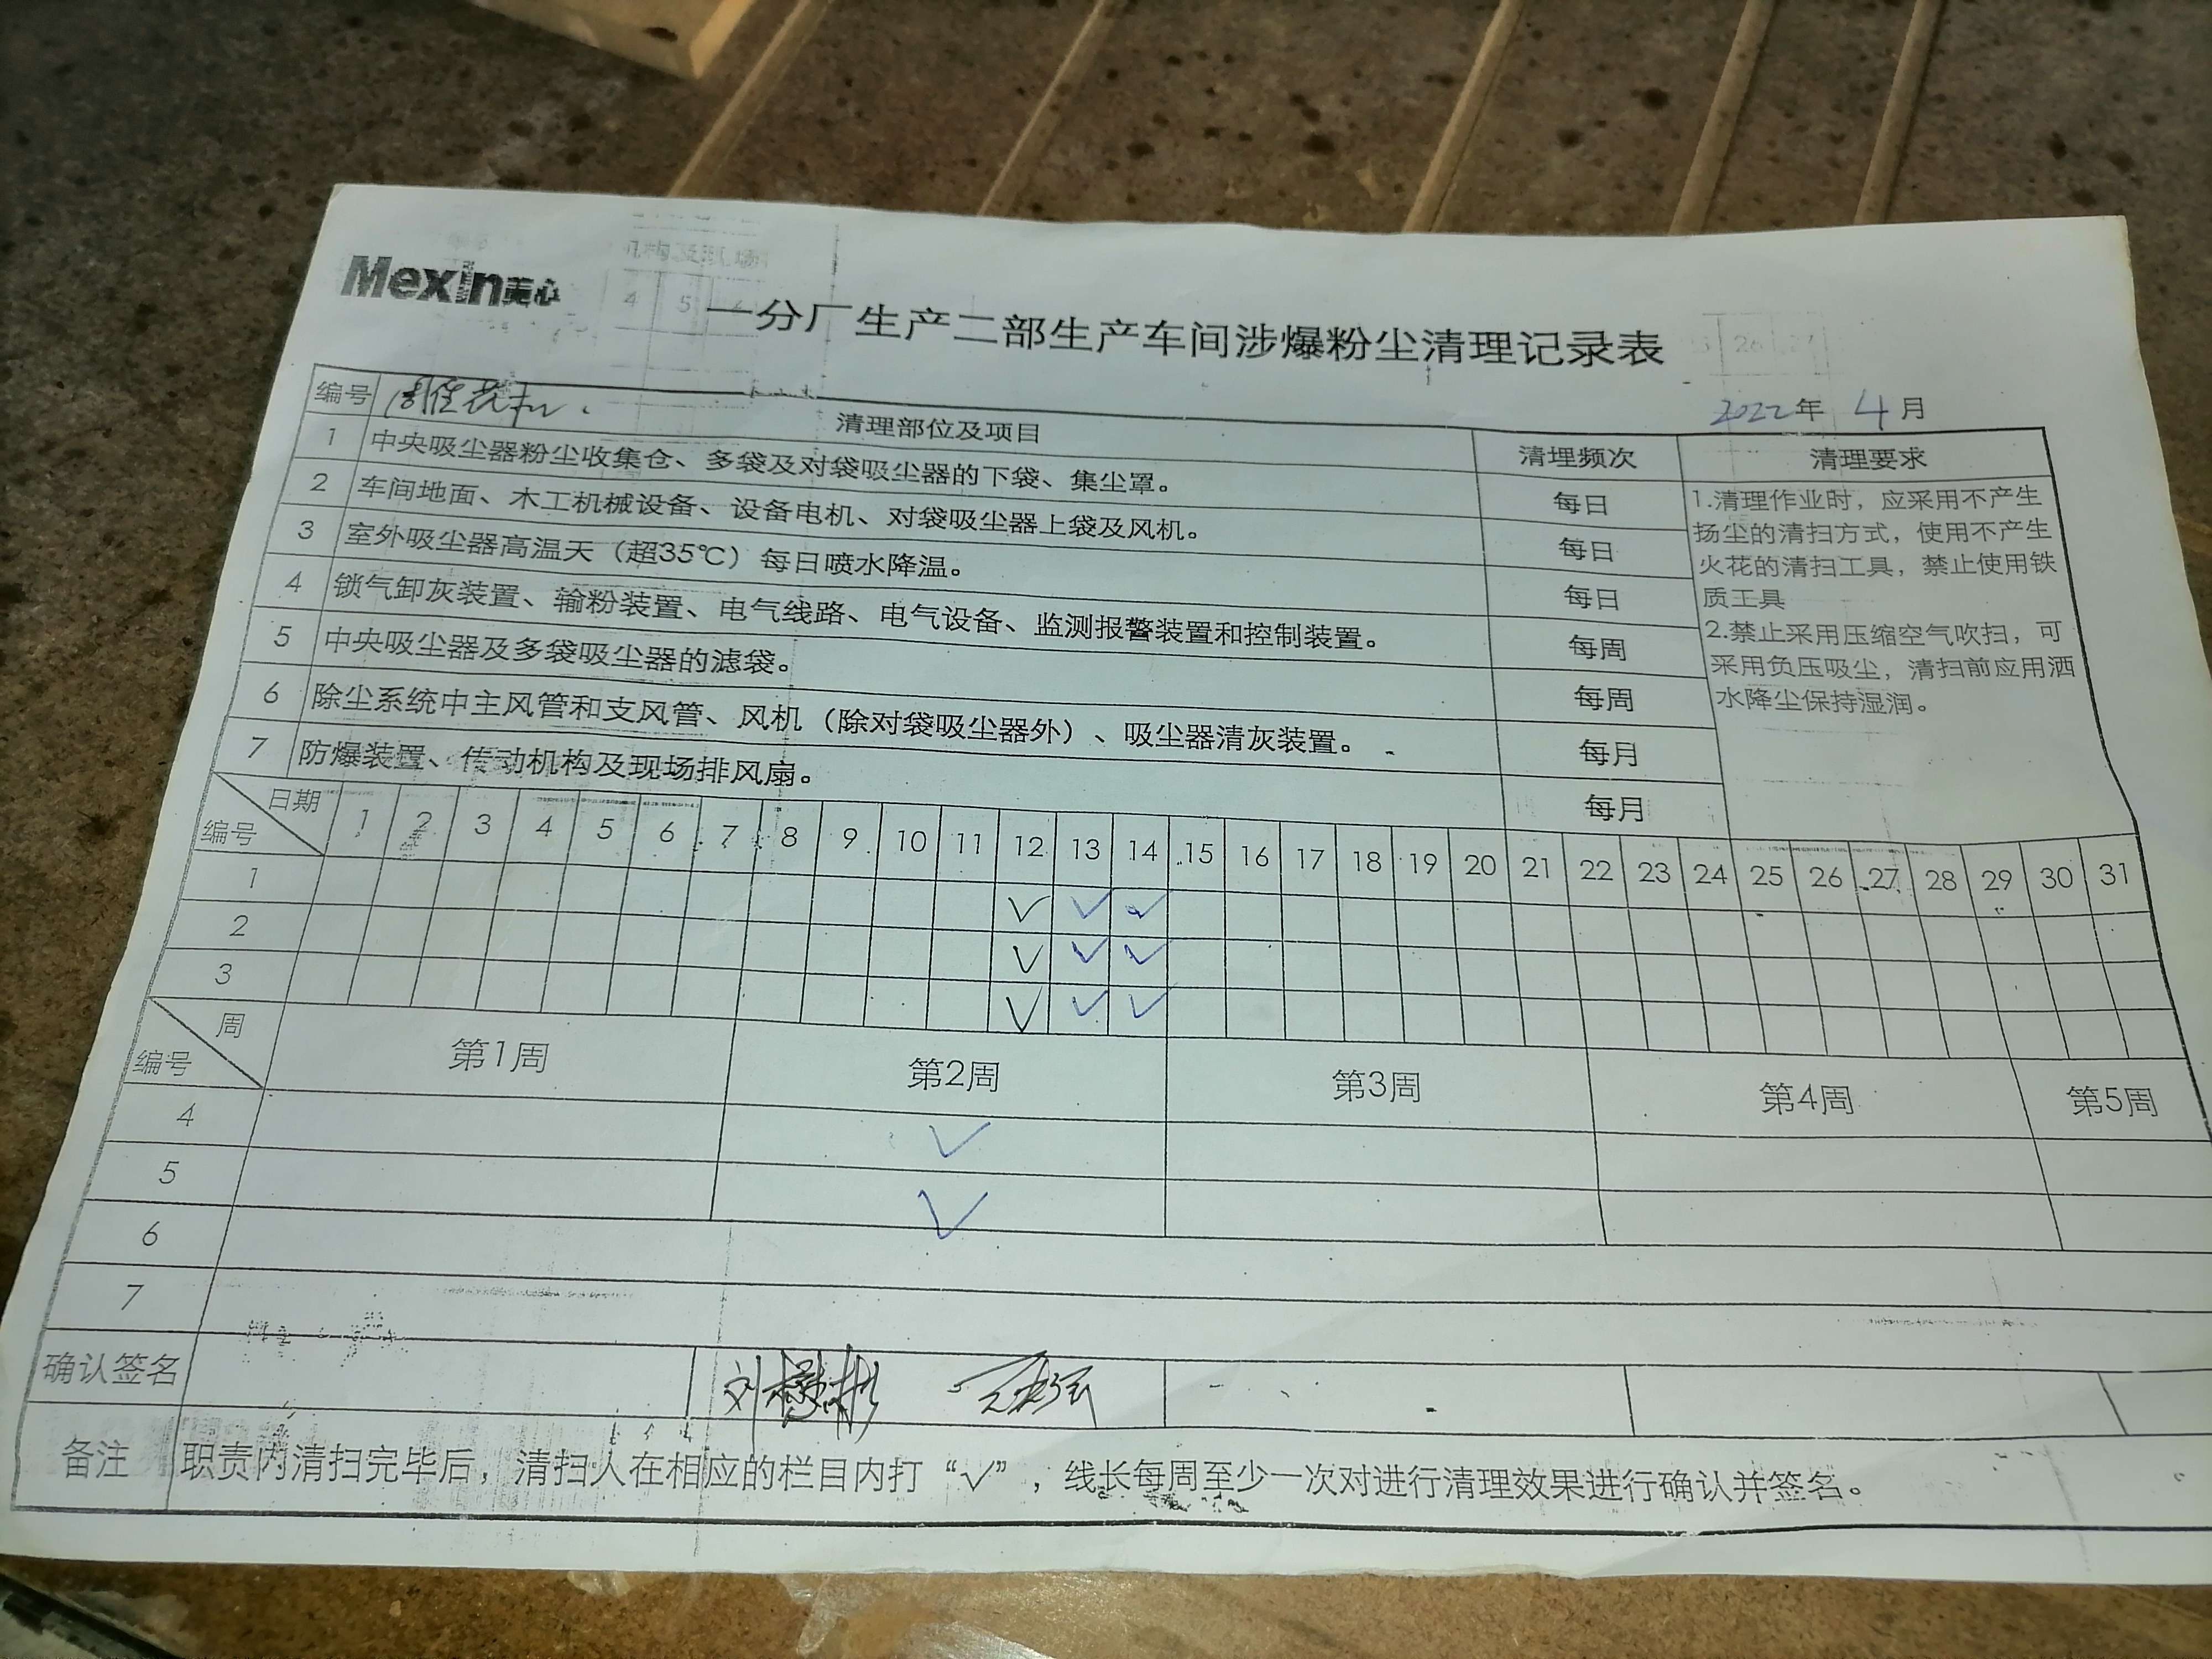 Mexin美心
一分厂生产二部生产车间涉爆粉尘清理记录表
2022年 4月
编号 清理部位及项目 清理频次 清理要求
1 中央吸尘器粉尘收集仓、多袋及对袋吸尘器的下袋、集尘罩。 每日
2 车间地面、木工机械设备、设备电机、对袋吸尘器上袋及风机。 每日
3 室外吸尘器高温天（超35℃）每日喷水降温。 每日
4 锁气卸灰装置、输粉装置、电气线路、电气设备、监测报警装置和控制装置。 每周
5 中央吸尘器及多袋吸尘器的滤袋。 每周
6 除尘系统中主风管和支风管、风机（除对袋吸尘器外）、吸尘器清灰装置。 每月
7 防爆装置、传动机构及现场排风扇。 每月
1.清理作业时，应采用不产生
扬尘的清扫方式，使用不产生
火花的清扫工具，禁止使用铁
质工具
2.禁止采用压缩空气吹扫，可
采用负压吸尘，清扫前应用洒
水降尘保持湿润。
日期 编号 1 2 3 4 5 6 7 8 9 10 11 12 13 14 15 16 17 18 19 20 21 22 23 24 25 26 27 28 29 30 31
1 √ √ √
2 √ √ √
3 √ √ √
周 编号 第1周 第2周 第3周 第4周 第5周
4 √
5 √
6
7
确认签名
备注 职责内清扫完毕后，清扫人在相应的栏目内打“√”，线长每周至少一次对进行清理效果进行确认并签名。